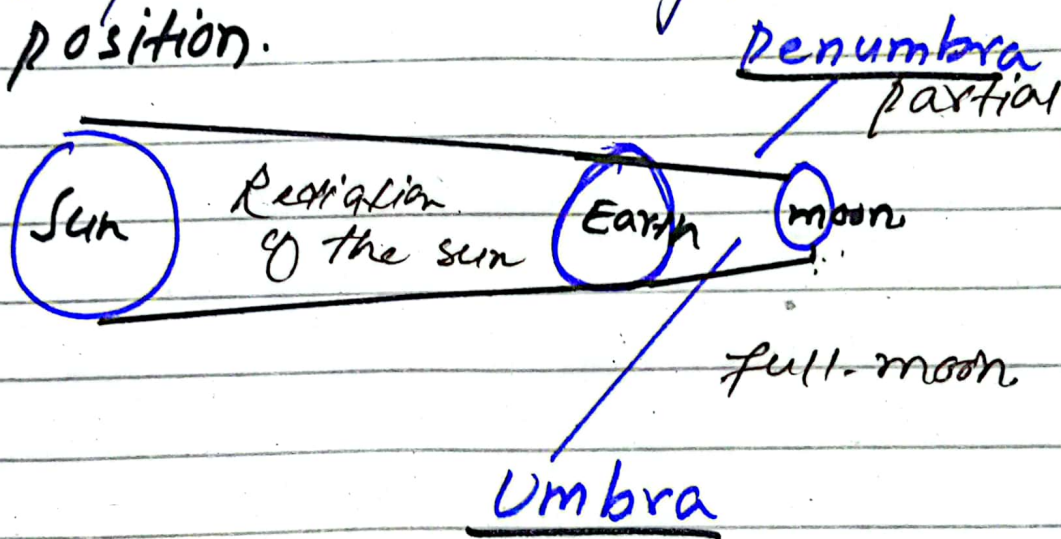 position.
penumbra
partial
Sun
Radiation
of the sun
Earth
moon
full-moon
Umbra